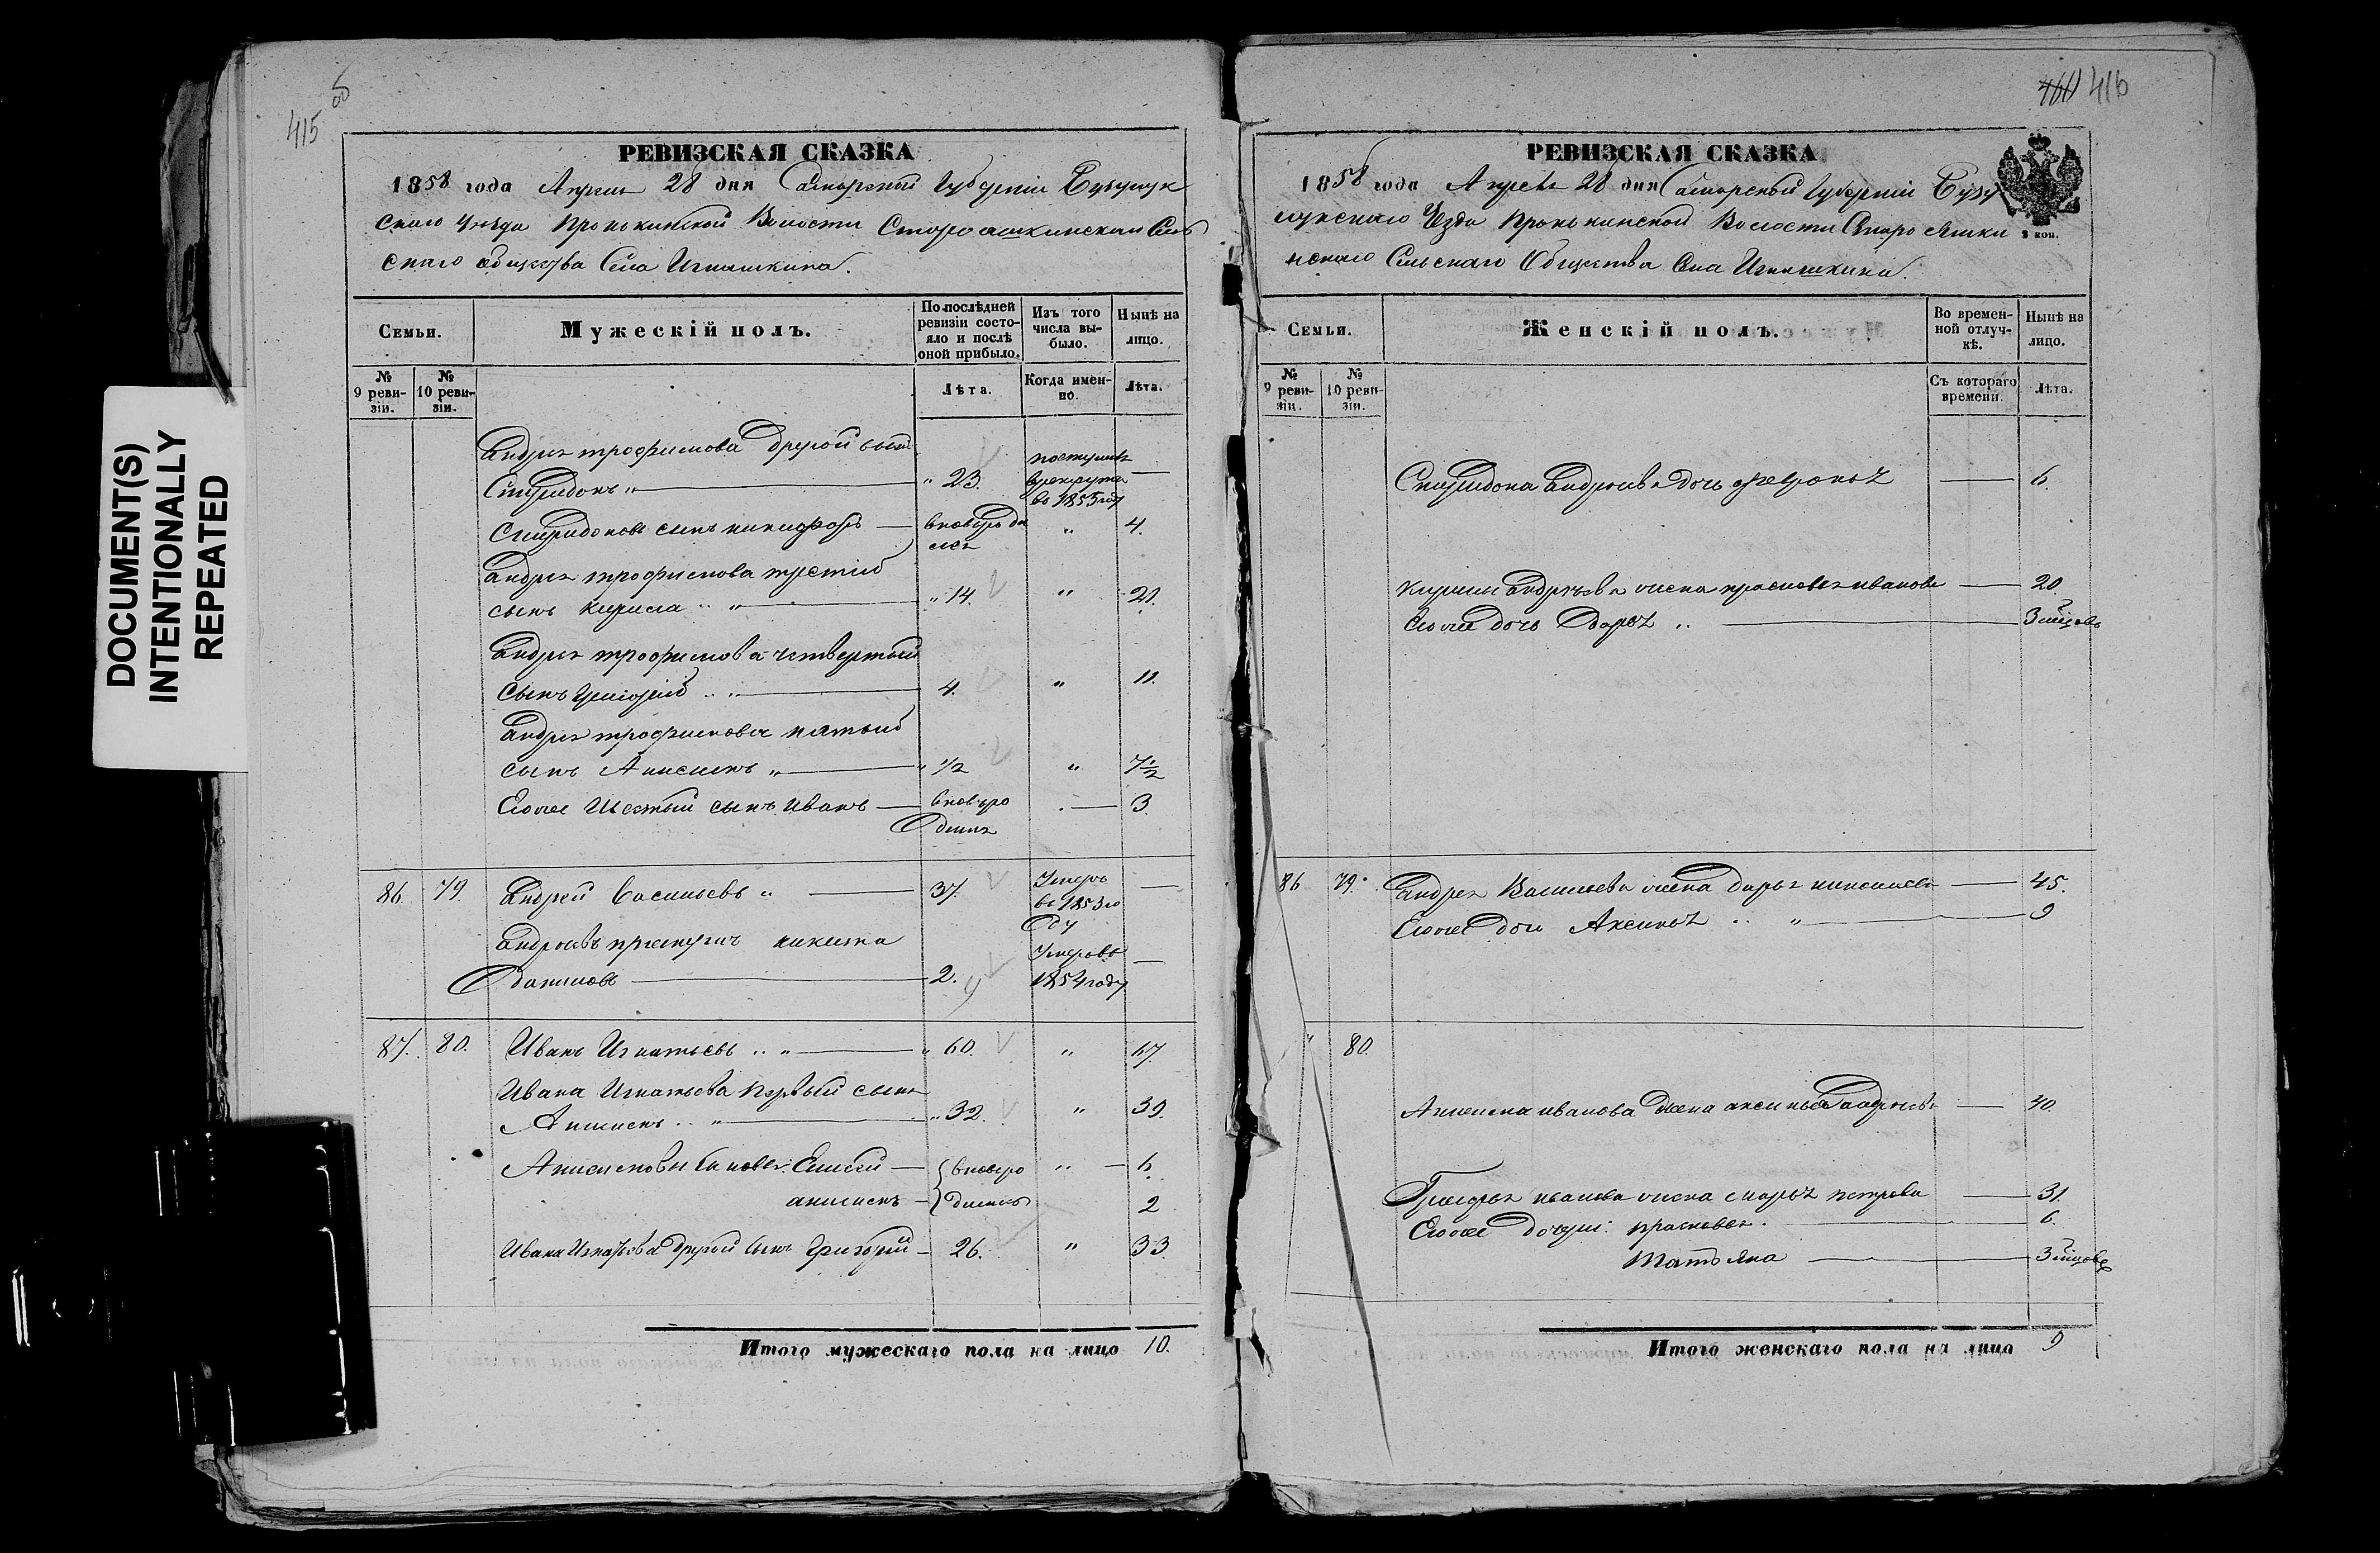 DOCUMENT(S)
INTENTIONALLY
REPEATED
415 об
РЕВИЗСКАЯ СКАЗКА
1858 года Апреля 28 дня Самарской Губерніи Бузулук
скаго Уезда Пронькинской Волости Староашкинскаго Сель
скаго общества Села Игнашкина.
Семьи.
Мужескій полъ.
По послѣдней ревизіи состо-
яло и послѣ
оной прибыло.
Изъ того
числа вы-
было.
Нынѣ на
лицо.
№
9 реви-
зіи.
№
10 реви-
зіи.
Лѣта.
Когда имен-
но.
Лѣта.
Андрея трофимова другой сынъ
Спиридонъ „ „ 23. поступилъ
в рекруты
въ 1855 году
Спиридоновъ сынъ никифоръ вновь ро
дился „ 4.
Андрея трофимова третій
сынъ Кирила „ „ 14. „ 21.
Андрея трофимова четвертый
сынъ Григорій „ 4. „ 11.
Андрея трофимова пятый
сынъ Анисимъ „ „ 1/2 „ 7 1/2
Его же Шестый сынъ Иванъ вновь ро
дился 3.
86. 79. Андрей Васильевъ „ 37. Умеръ
въ 1853 го
ду
Андреевъ пріемышъ никита
Даниловъ 2. Умеръ въ
1854 году
87. 80. Иванъ Игнатьевъ „ „ 60. „ 67.
Ивана Игнатьева первый сынъ
Анисимъ „ „ 32. „ 39.
Анисимовы сыновья: Елисей вновь ро „ 6.
анисимъ дились 2
Ивана Игнатьева другой сынъ Григорій 26. „ 33.
Итого мужескаго пола на лицо 10.
460 416
РЕВИЗСКАЯ СКАЗКА
1858 года Апреля 28 дня Самарской Губерніи Бузу
лукскаго Уезда Пронькинской Волости Старо Яшки
нскаго Сельскаго Общества Села Игнашкина.
коп.
Семьи.
Женскій полъ.
Во времен-
ной отлуч-
кѣ.
Нынѣ на
лицо.
№
9 реви-
зіи.
№
10 реви-
зіи.
Съ котораго
времени.
Лѣта.
Спиридона Андреева дочь Февронья 6.
Кирилы Андреева жена прасковья иванова 20.
Его же дочь Дарья „ 3 мѣсяцовъ
86 79. Андрея Васильева жена Дарья 45.
Его же дочь Аксинья „ „ 9
„ 80.
Анисима иванова жена аксинья 40.
Григорья иванова жена марья петрова 31.
Его же дочери: прасковья. 6.
Татьяна 3 мѣсяцовъ
Итого женскаго пола на лицо 9